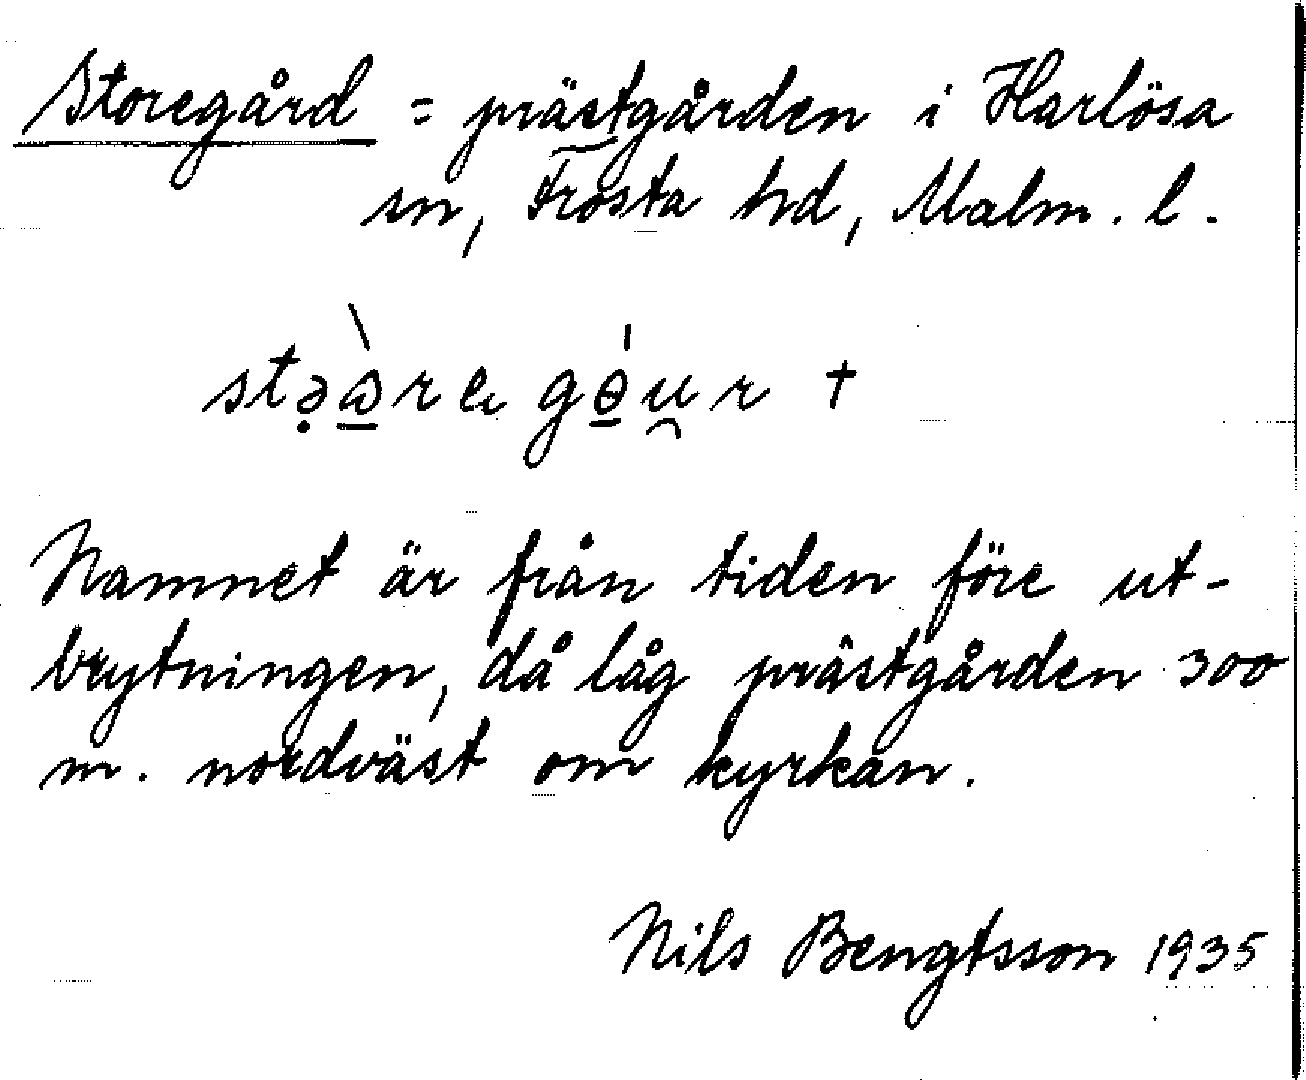 Storegård = prästgården i Harlösa
sn, Frosta hd, Malm. l.
Namnet är från tiden före ut-
brytningen, då låg prästgården 300
m. nordväst om kyrkan.
Nils Bengtsson 1935